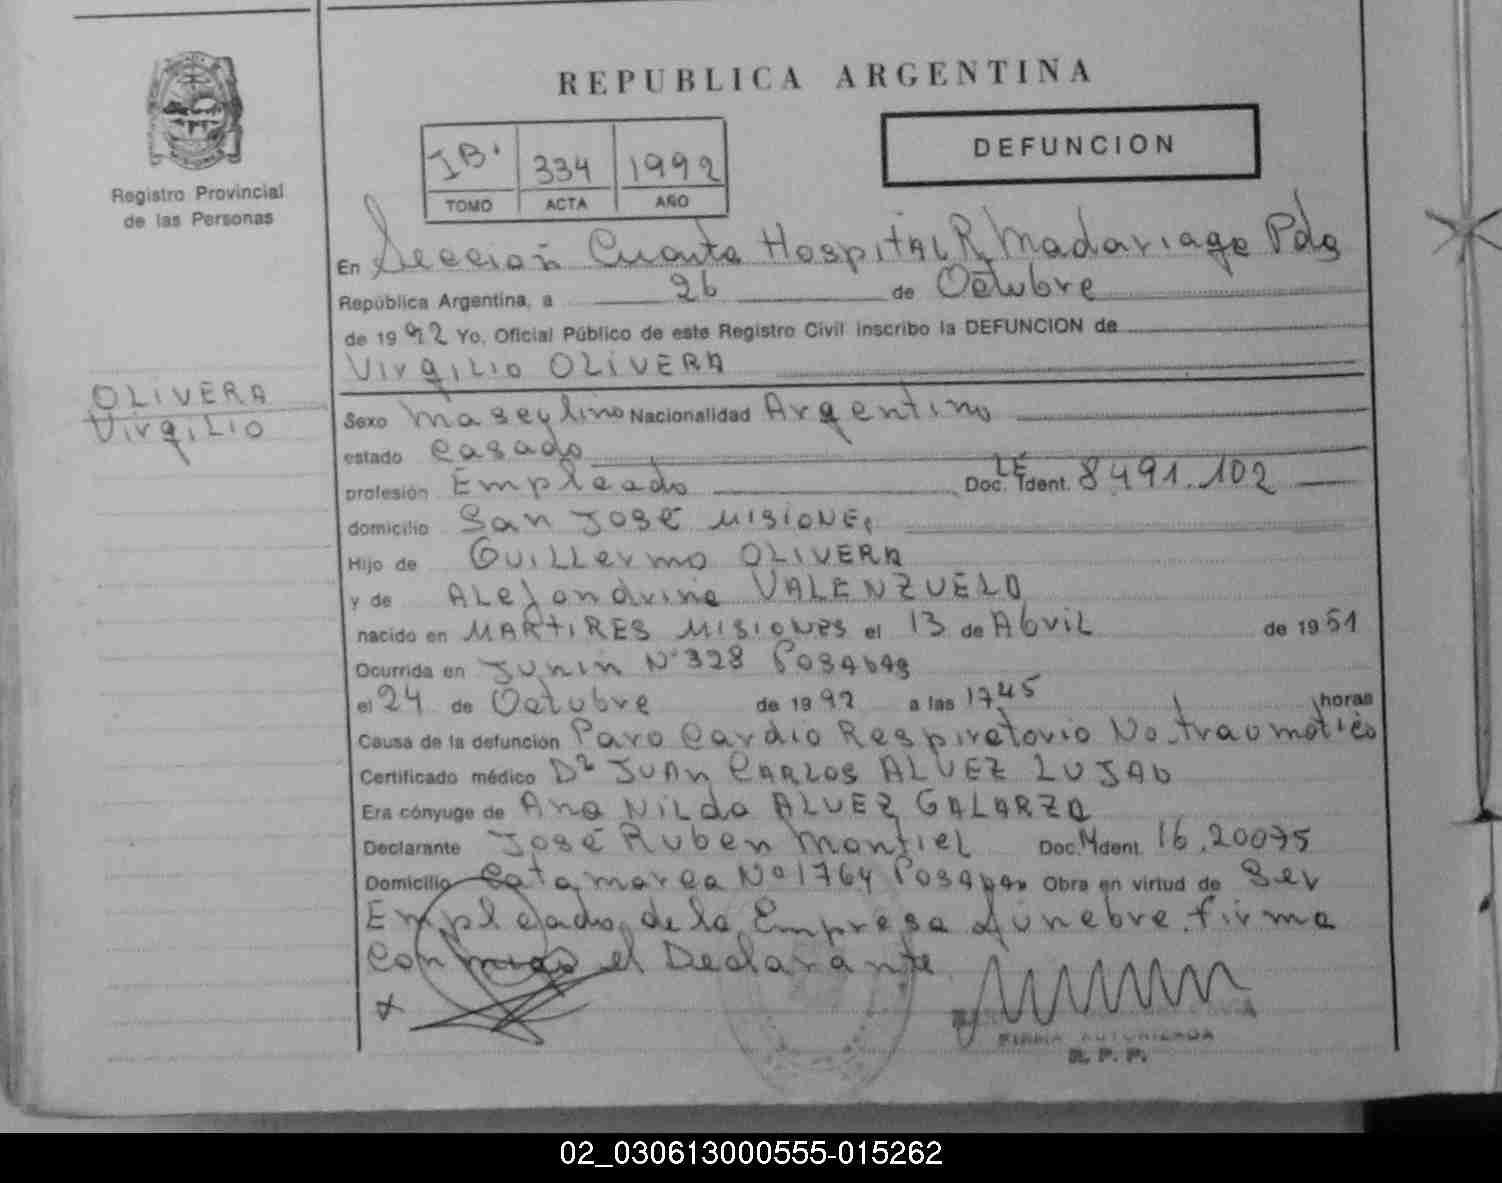 REPUBLICA ARGENTINA
Registro Provincial
de las Personas
IB. 334 1992
TOMO ACTA AÑO
DEFUNCION
En Sección Cuarta Hospital R. Madariaga Pdas
República Argentina, a 26 de Octubre
de 1992 Yo, Oficial Público de este Registro Civil inscribo la DEFUNCION de
Virgilio OLIVERA
OLIVERA
Virgilio
Sexo Masculino Nacionalidad Argentino
estado Casado
profesión Empleado Doc. LE Ident. 8.491.102
domicilio San José Misiones
Hijo de Guillermo OLIVERA
y de Alejandrina VALENZUELA
nacido en MARTIRES MISIONES el 13 de Abril de 1951
Ocurrida en Junin N° 328 Posadas
el 24 de Octubre de 1992 a las 17,45 horas
Causa de la defunción Paro Cardio Respiratorio No traumatico
Certificado médico Dr Juan CARLOS ALVEZ LUJAN
Era cónyuge de Ana Nilda ALVEZ GALARZA
Declarante José Ruben Montiel Doc. M Ident. 16.20075
Domicilio Catamarca N° 1764 Posadas Obra en virtud de Ser
Empleado de la Empresa Funebre. firma
con migo el Declarante
FIRMA AUTORIZADA
R. P. P.
02_030613000555-015262